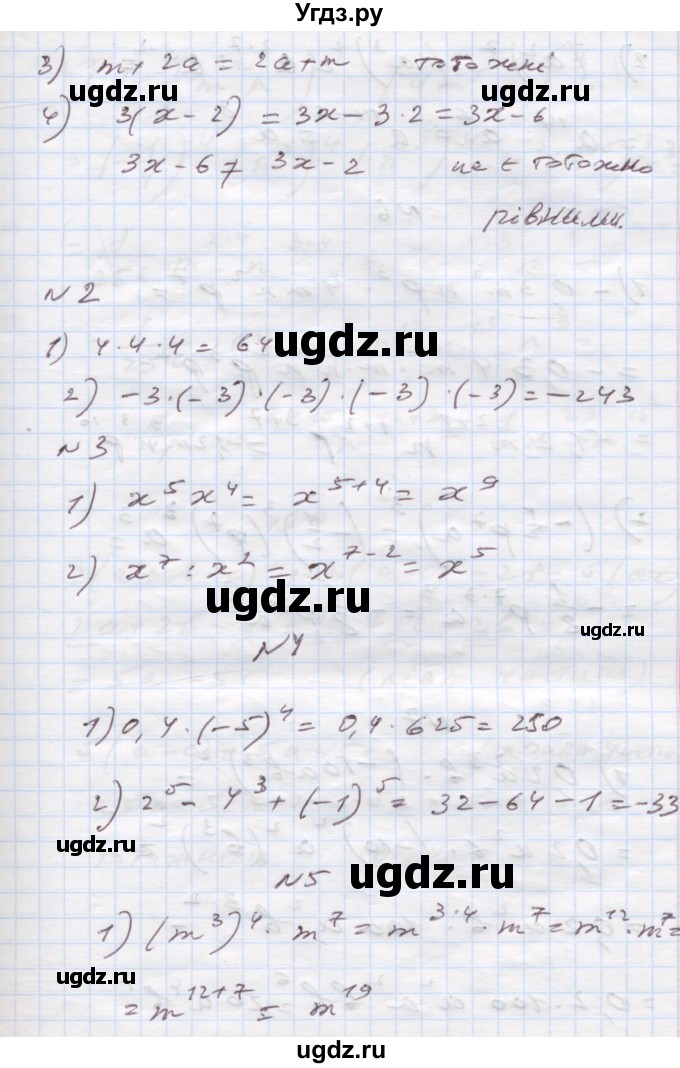 Угдз.ру
3) m + 2a = 2a + m тотожні
ugdz.ru ugdz.ru
4) 3(x - 2) = 3x - 3 · 2 = 3x - 6
3x - 6 ≠ 3x - 2 не є тотожно
рівними.
N 2
1) 4 · 4 · 4 = 64
ugdz.ru
2) -3 · (-3) · (-3) · (-3) · (-3) = -243
N 3
1) x⁵ · x⁴ = x⁵⁺⁴ = x⁹
2) x⁷ : x² = x⁷⁻² = x⁵
ugdz.ru
ugdz.ru
N 4
1) 0,4 · (-5)⁴ = 0,4 · 625 = 250
2) 2⁵ - 4³ + (-1)⁵ = 32 - 64 - 1 = -33
ugdz.ru
N 5 ugdz.ru
1) (m³)⁴ · m⁷ = m³·⁴ · m⁷ = m¹² · m⁷ =
ugdz.ru
= m¹²⁺⁷ = m¹⁹
ugdz.ru